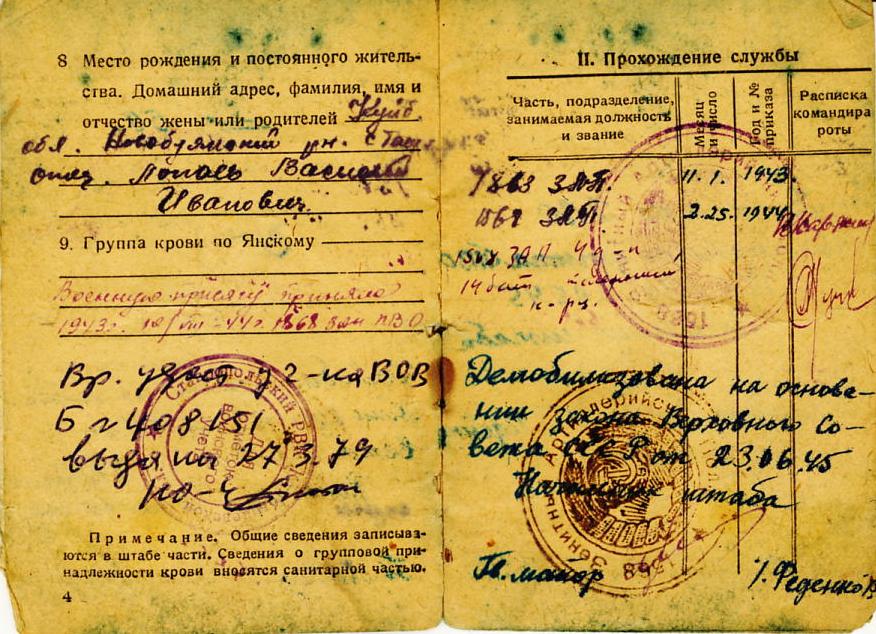 8 Место рождения и постоянного житель-
ства. Домашний адрес, фамилия, имя и
отчество жены или родителей Куйб
обл. Новобуянский рн. с
отец. Попов Василий
Иванович.
9. Группа крови по Янскому
Военную присягу приняла
1943г. 1868 зап ПВО
Вр. удост у2-ка ВОВ
Б № 408151
выдано 27.3.79
Примечание. Общие сведения записыва-
ются в штабе части. Сведения о групповой при-
надлежности крови вносятся санитарной частью.
4
II. Прохождение службы
Часть, подразделение,
занимаемая должность
и звание
Месяц
и число
Год и №
приказа
Расписка
командира
роты
1868 ЗАП. 11.1. 1943.
ЗАП. 2.25. 1944
ЗАП
14 бат
Демобилизована на основе-
нии закона Верховного Со-
вета СССР от 23.06.45
Начальник штаба
Гв. майор Феденков